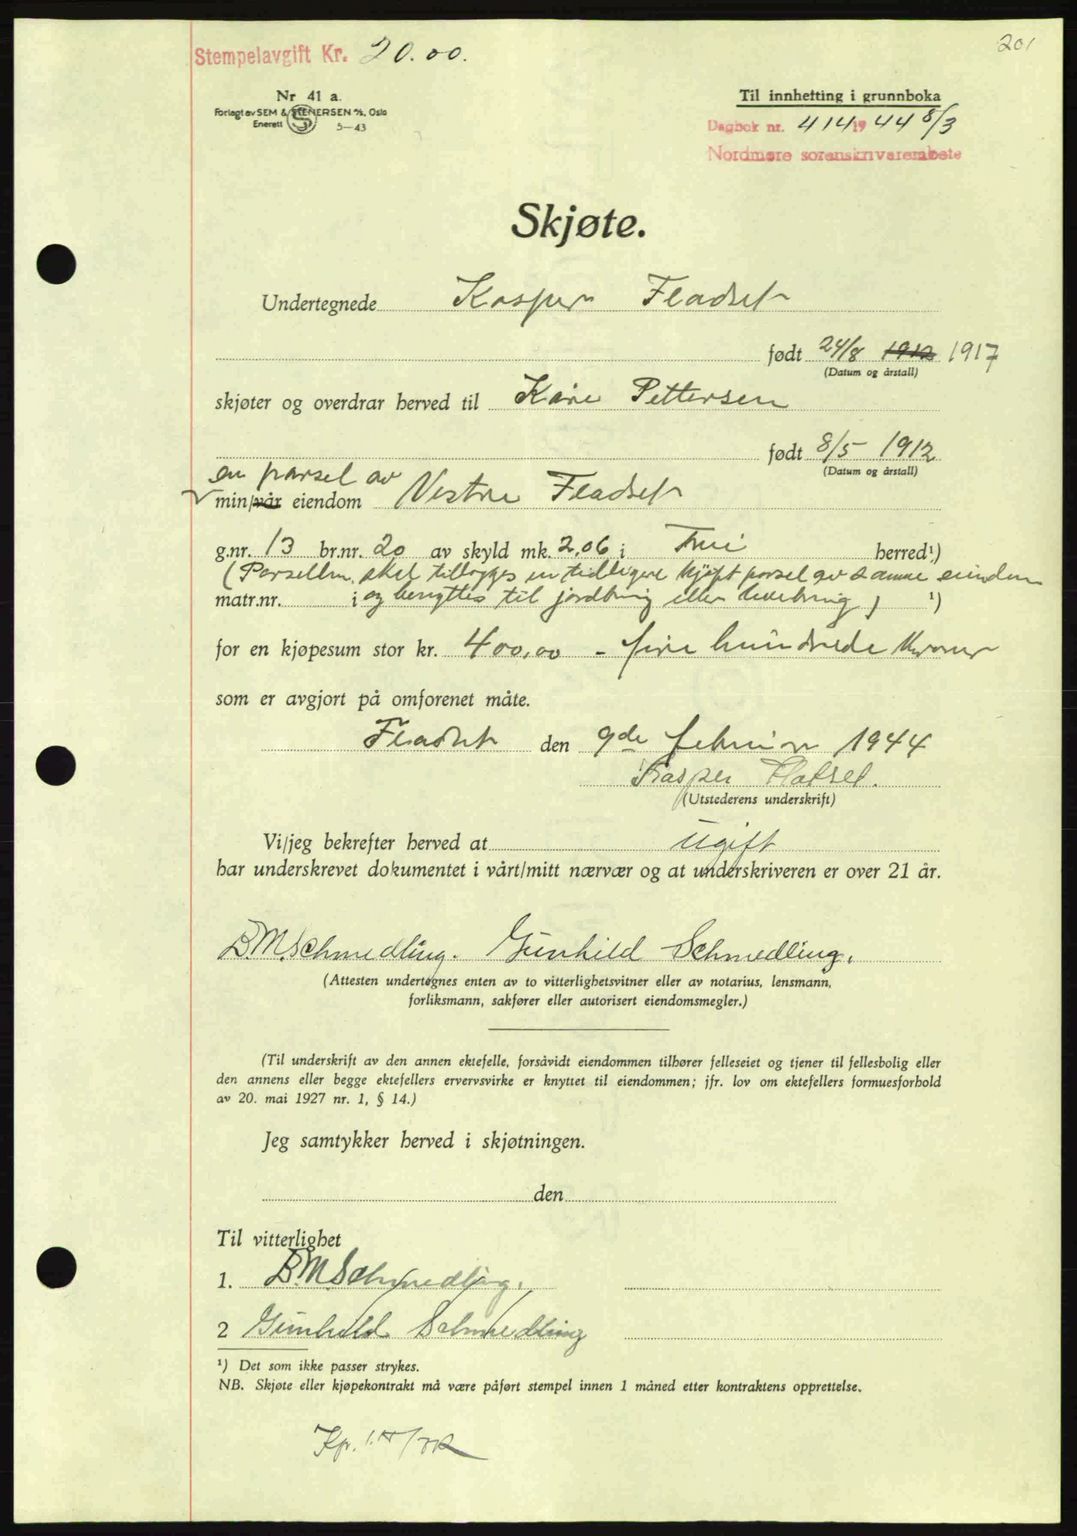 201
Stempelavgift Kr. 20.00.
Nr 41 a.
Forlagt av SEM & STENERSEN A/S, Oslo
Enerett 5—43
Til innhefting i grunnboka
Dagbok nr. 414 1944 8/3
Nordmøre sorenskriverembete
Skjøte.
Undertegnede Kasper Fladset
født 24/8 1912 1917
(Datum og årstall)
skjøter og overdrar herved til Kåre Pettersen
født 8/5 1912
(Datum og årstall)
en parsel av
min/vår eiendom Vestre Fladset
g.nr. 13 br.nr. 20 av skyld mk. 2,06 i herred¹)
(Parsellen skal tillegges en tidligere kjøpt parsel av samme eiendom
matr.nr. i og benyttes til jordbruk eller) ¹)
for en kjøpesum stor kr. 400,00 - fire hundrede kroner
som er avgjort på omforenet måte.
Fladset den 9de februar 1944
Kasper Flatset.
(Utstederens underskrift)
Vi/jeg bekrefter herved at ugift
har underskrevet dokumentet i vårt/mitt nærvær og at underskriveren er over 21 år.
B.M.Schmedling. Gunhild Schmedling.
(Attesten undertegnes enten av to vitterlighetsvitner eller av notarius, lensmann,
forliksmann, sakfører eller autorisert eiendomsmegler.)
(Til underskrift av den annen ektefelle, forsåvidt eiendommen tilhører felleseiet og tjener til fellesbolig eller
den annens eller begge ektefellers ervervsvirke er knyttet til eiendommen; jfr. lov om ektefellers formuesforhold
av 20. mai 1927 nr. 1, § 14.)
Jeg samtykker herved i skjøtningen.
den
Til vitterlighet
1. B.M.Schmedling.
2 Gunhild Schmedling
¹) Det som ikke passer strykes.
NB. Skjøte eller kjøpekontrakt må være påført stempel innen 1 måned etter kontraktens opprettelse.